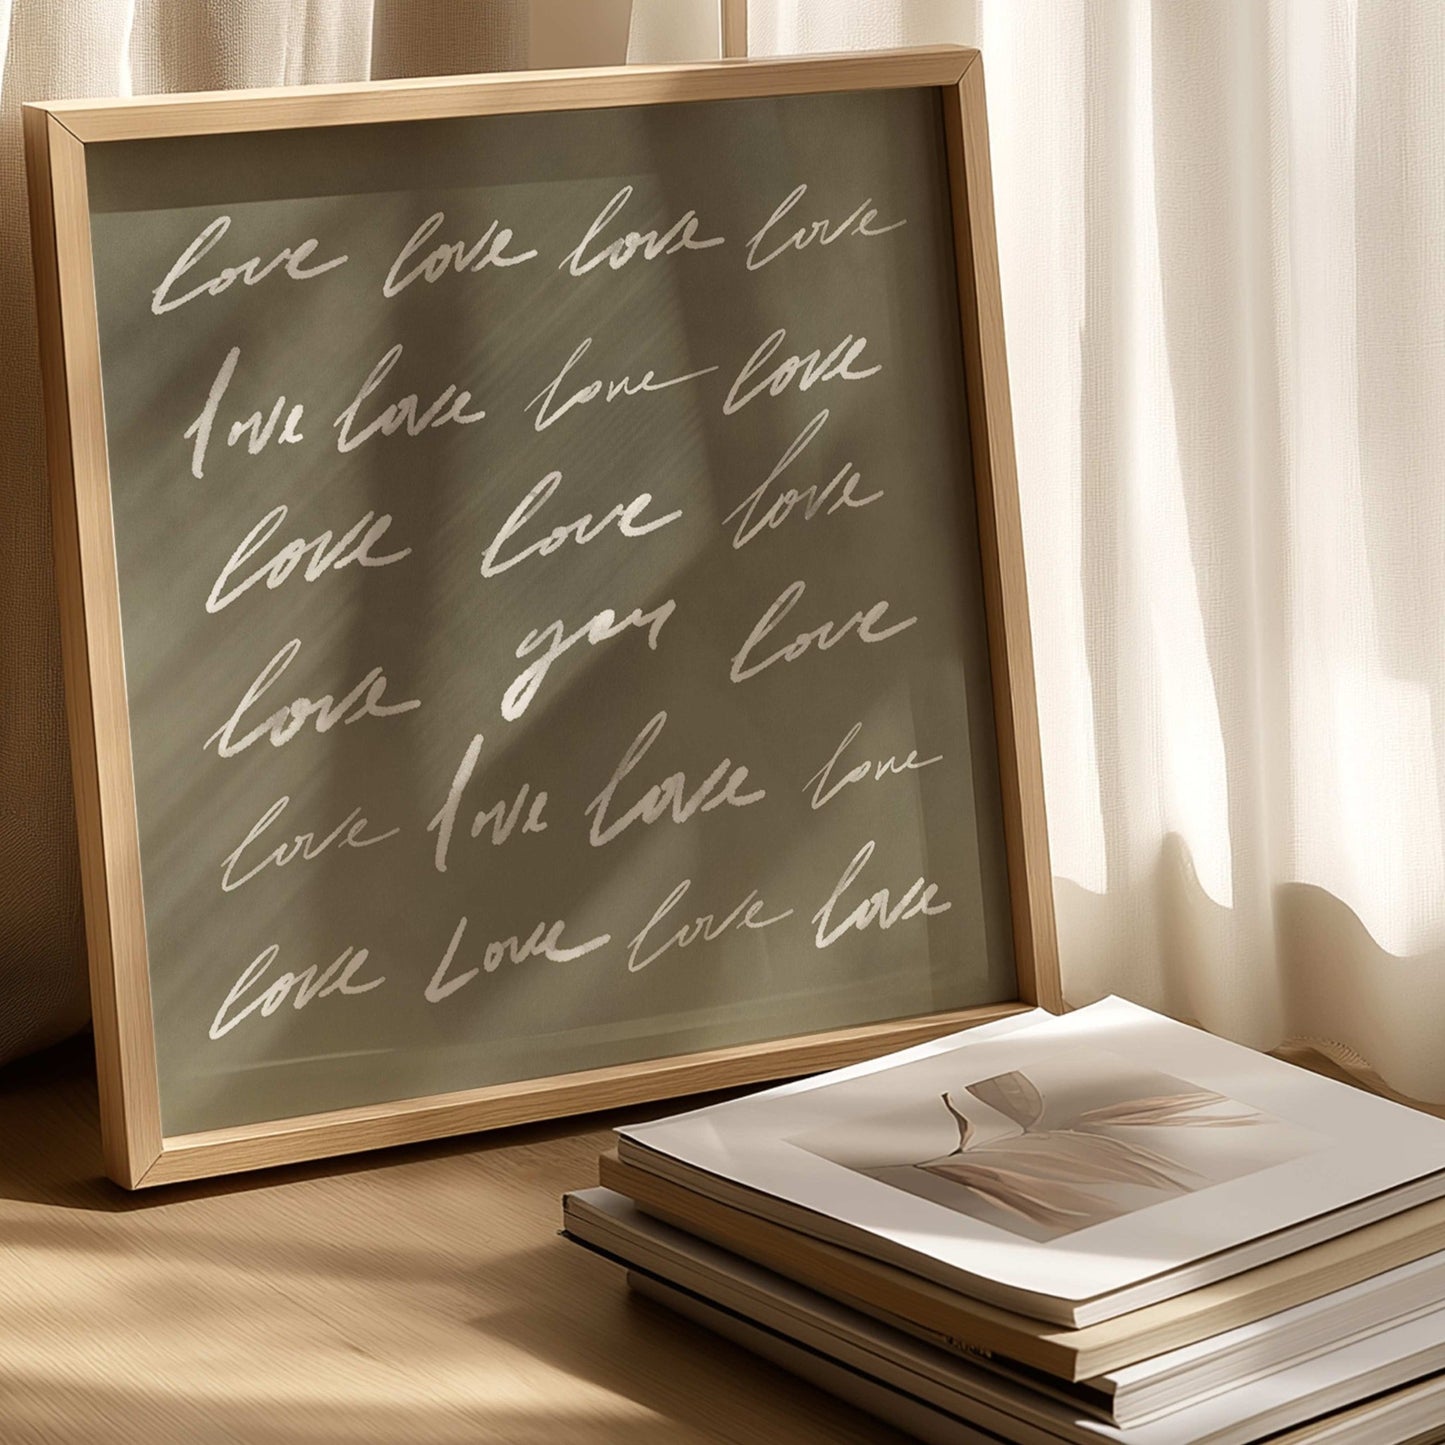 love love love love
love love love love
love love love
love you love
love love love love
love Love love love